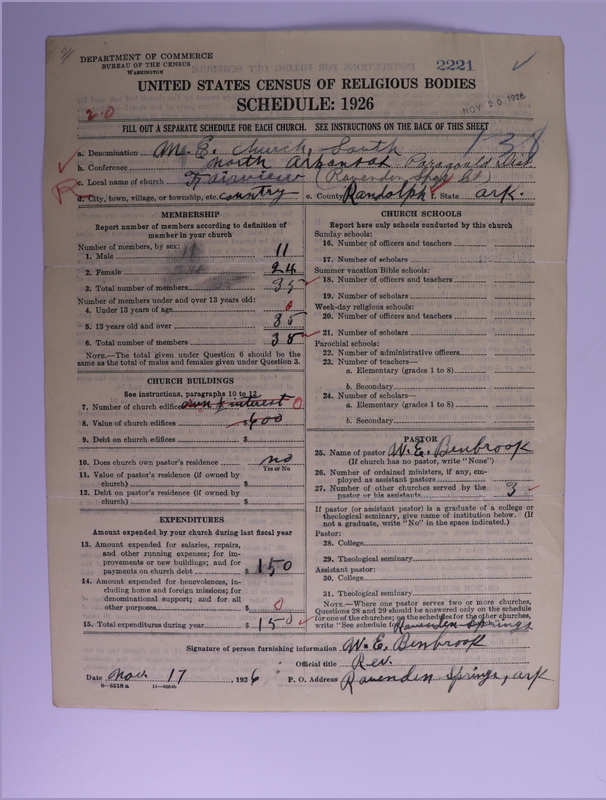 DEPARTMENT OF COMMERCE
BUREAU OF THE CENSUS
WASHINGTON
2221
UNITED STATES CENSUS OF RELIGIOUS BODIES
SCHEDULE: 1926
NOV 20 1926
2-0
138
FILL OUT A SEPARATE SCHEDULE FOR EACH CHURCH. SEE INSTRUCTIONS ON THE BACK OF THIS SHEET
a. Denomination M.E. Church, South
b. Conference North Arkansas Paragould Dist.
c. Local name of church Fairview (Ravenden Spgs Ct)
d. City, town, village, or township, etc. country e. County Randolph f. State Ark.
MEMBERSHIP
Report number of members according to definition of member in your church
Number of members, by sex:
1. Male 11
2. Female 24
3. Total number of members 35
Number of members under and over 13 years old:
4. Under 13 years of age 0
5. 13 years old and over 35
6. Total number of members 35
NOTE.—The total given under Question 6 should be
same as the total of males and females given under Question 3.
CHURCH BUILDINGS
See instructions, paragraphs 10 to 12
7. Number of church edifices own ½ interest 0
8. Value of church edifices 600
9. Debt on church edifices $
10. Does church own pastor's residence no
Yes or No
11. Value of pastor's residence (if owned by
church) $
12. Debt on pastor's residence (if owned by
church) $
EXPENDITURES
Amount expended by your church during last fiscal year
13. Amount expended for salaries, repairs,
and other running expenses; for im-
provements or new buildings; and for
payments on church debt $ 150
14. Amount expended for benevolences, in-
cluding home and foreign missions; for
denominational support; and for all
other purposes $ 0
15. Total expenditures during year $ 150
CHURCH SCHOOLS
Report here only schools conducted by this church
Sunday schools:
16. Number of officers and teachers
17. Number of scholars
Summer vacation Bible schools:
18. Number of officers and teachers
19. Number of scholars
Week-day religious schools:
20. Number of officers and teachers
21. Number of scholars
Parochial schools:
22. Number of administrative officers
23. Number of teachers—
a. Elementary (grades 1 to 8)
b. Secondary
24. Number of scholars—
a. Elementary (grades 1 to 8)
b. Secondary
PASTOR
25. Name of pastor W. E. Benbrook
(If church has no pastor, write "None")
26. Number of ordained ministers, if any, em-
ployed as assistant pastors
27. Number of other churches served by the
pastor or his assistants 3
If pastor (or assistant pastor) is a graduate of a college or
theological seminary, give name of institution below. (If
not a graduate, write "No" in the space indicated.)
Pastor:
28. College
29. Theological seminary
Assistant pastor:
30. College
31. Theological seminary
NOTE.—Where one pastor serves two or more churches,
Questions 28 and 29 should be answered only on the schedule
for one of the churches; on the schedules for the other churches,
write "See schedule for Ravenden Springs
Signature of person furnishing information W. E. Benbrook
Official title Rev.
Date Nov. 17, 1926 P. O. Address Ravenden Springs, Ark
8—5518 a